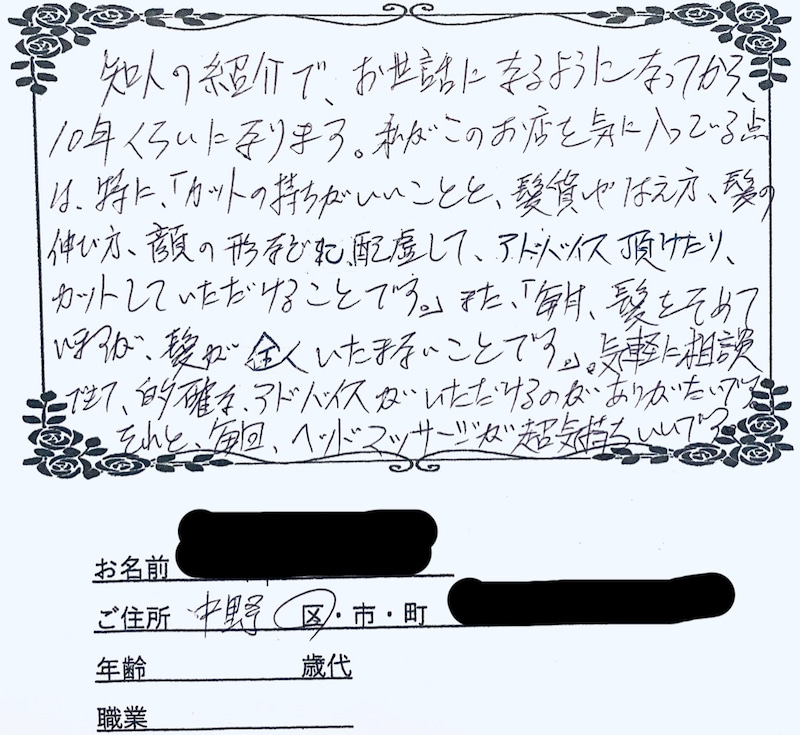 知人の紹介で、お世話になるようになってから、
10年くらいになります。私がこのお店を気に入っている点
は、特に、「カットの持ちがいいことと、髪質やはえ方、髪の
伸び方、顔の形などに配慮して、アドバイス頂けたり、
カットしていただけることです。」また、「毎月、髪をそめて
いますが、髪が全くいたまないことです。」気軽に相談
できて、的確な、アドバイスがいただけるのがありがたいです
それと、毎回、ヘッドマッサージが超気持ちいいです
お名前
ご住所 中野 区・市・町
年齢 歳代
職業